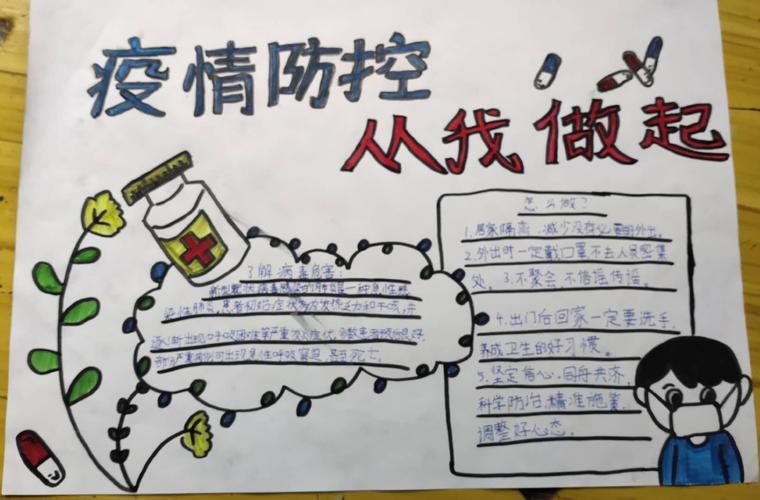 疫情防控
从我做起
了解病毒危害:
新型冠状病毒感染的肺炎是一种急性感
染性肺炎,患者初始症状多为发热乏力和干咳,并
逐渐出现呼吸困难等严重症状,多数患者预后良好,
部分严重病例可出现急性呼吸窘迫,甚至死亡。
怎么做?
1.居家隔离,减少没有必要的外出。
2.外出时一定戴口罩不去人员密集
处。3.不聚会,不信谣传谣,
4.出门后回家一定要洗手,
养成卫生的好习惯。
5.坚定信心,同舟共济,
科学防治,精准施策,
调整好心态。